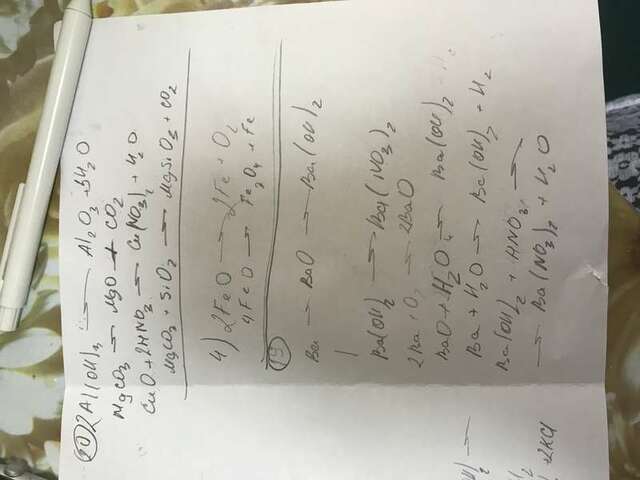 20) 2Al(OH)3 → Al2O3 + 3H2O
MgCO3 → MgO + CO2
CuO + 2HNO3 → Cu(NO3)2 + H2O
MgCO3 + SiO2 → MgSiO3 + CO2
4) 2FeO → 2Fe + O2
4FeO → Fe3O4 + Fe
19
Ba → BaO → Ba(OH)2
Ba(OH)2 → Ba(NO3)2
2Ba + O2 → 2BaO
BaO + H2O → Ba(OH)2
Ba + H2O → Ba(OH)2 + H2
Ba(OH)2 + HNO3 →
→ Ba(NO3)2 + H2O
+ 2KCl